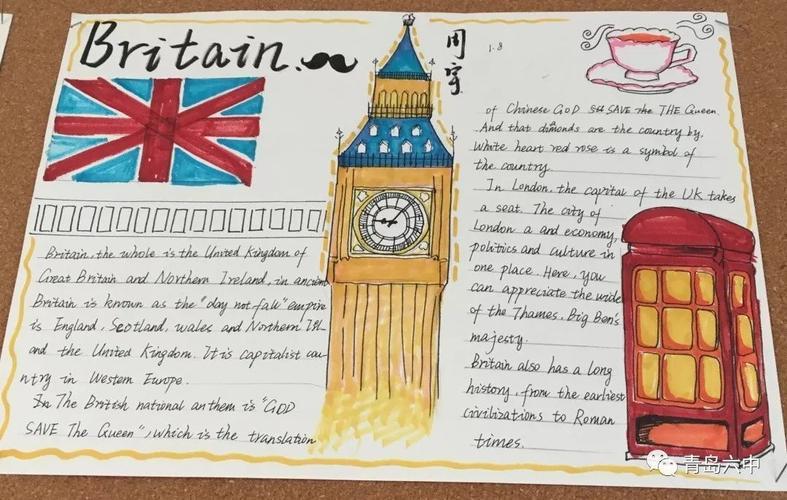 Britain.
周宇
1.8
Britain, the whole is the United Kingdom of
Great Britain and Northern Ireland, in ancient
Britain is known as the "day not fall" empire
is England, Scotland, wales and Northern
and the United Kingdom. It is capitalist cou-
ntry in Western Europe.
In The British national anthem is "GOD
SAVE The Queen", which is the translation
of Chinese GOD SAVE the THE Queen.
And that dimonds are the country by,
white heart red rose is a symbol of
the country.
In London, the capital of the UK takes
a seat. The city of
London a and economy,
politics and culture in
one place. Here, you
can appreciate the wide
of the Thames, Big Ben's
majesty.
Britain also has a long
history, from the earliest
civilizations to Roman
times.
青岛六中